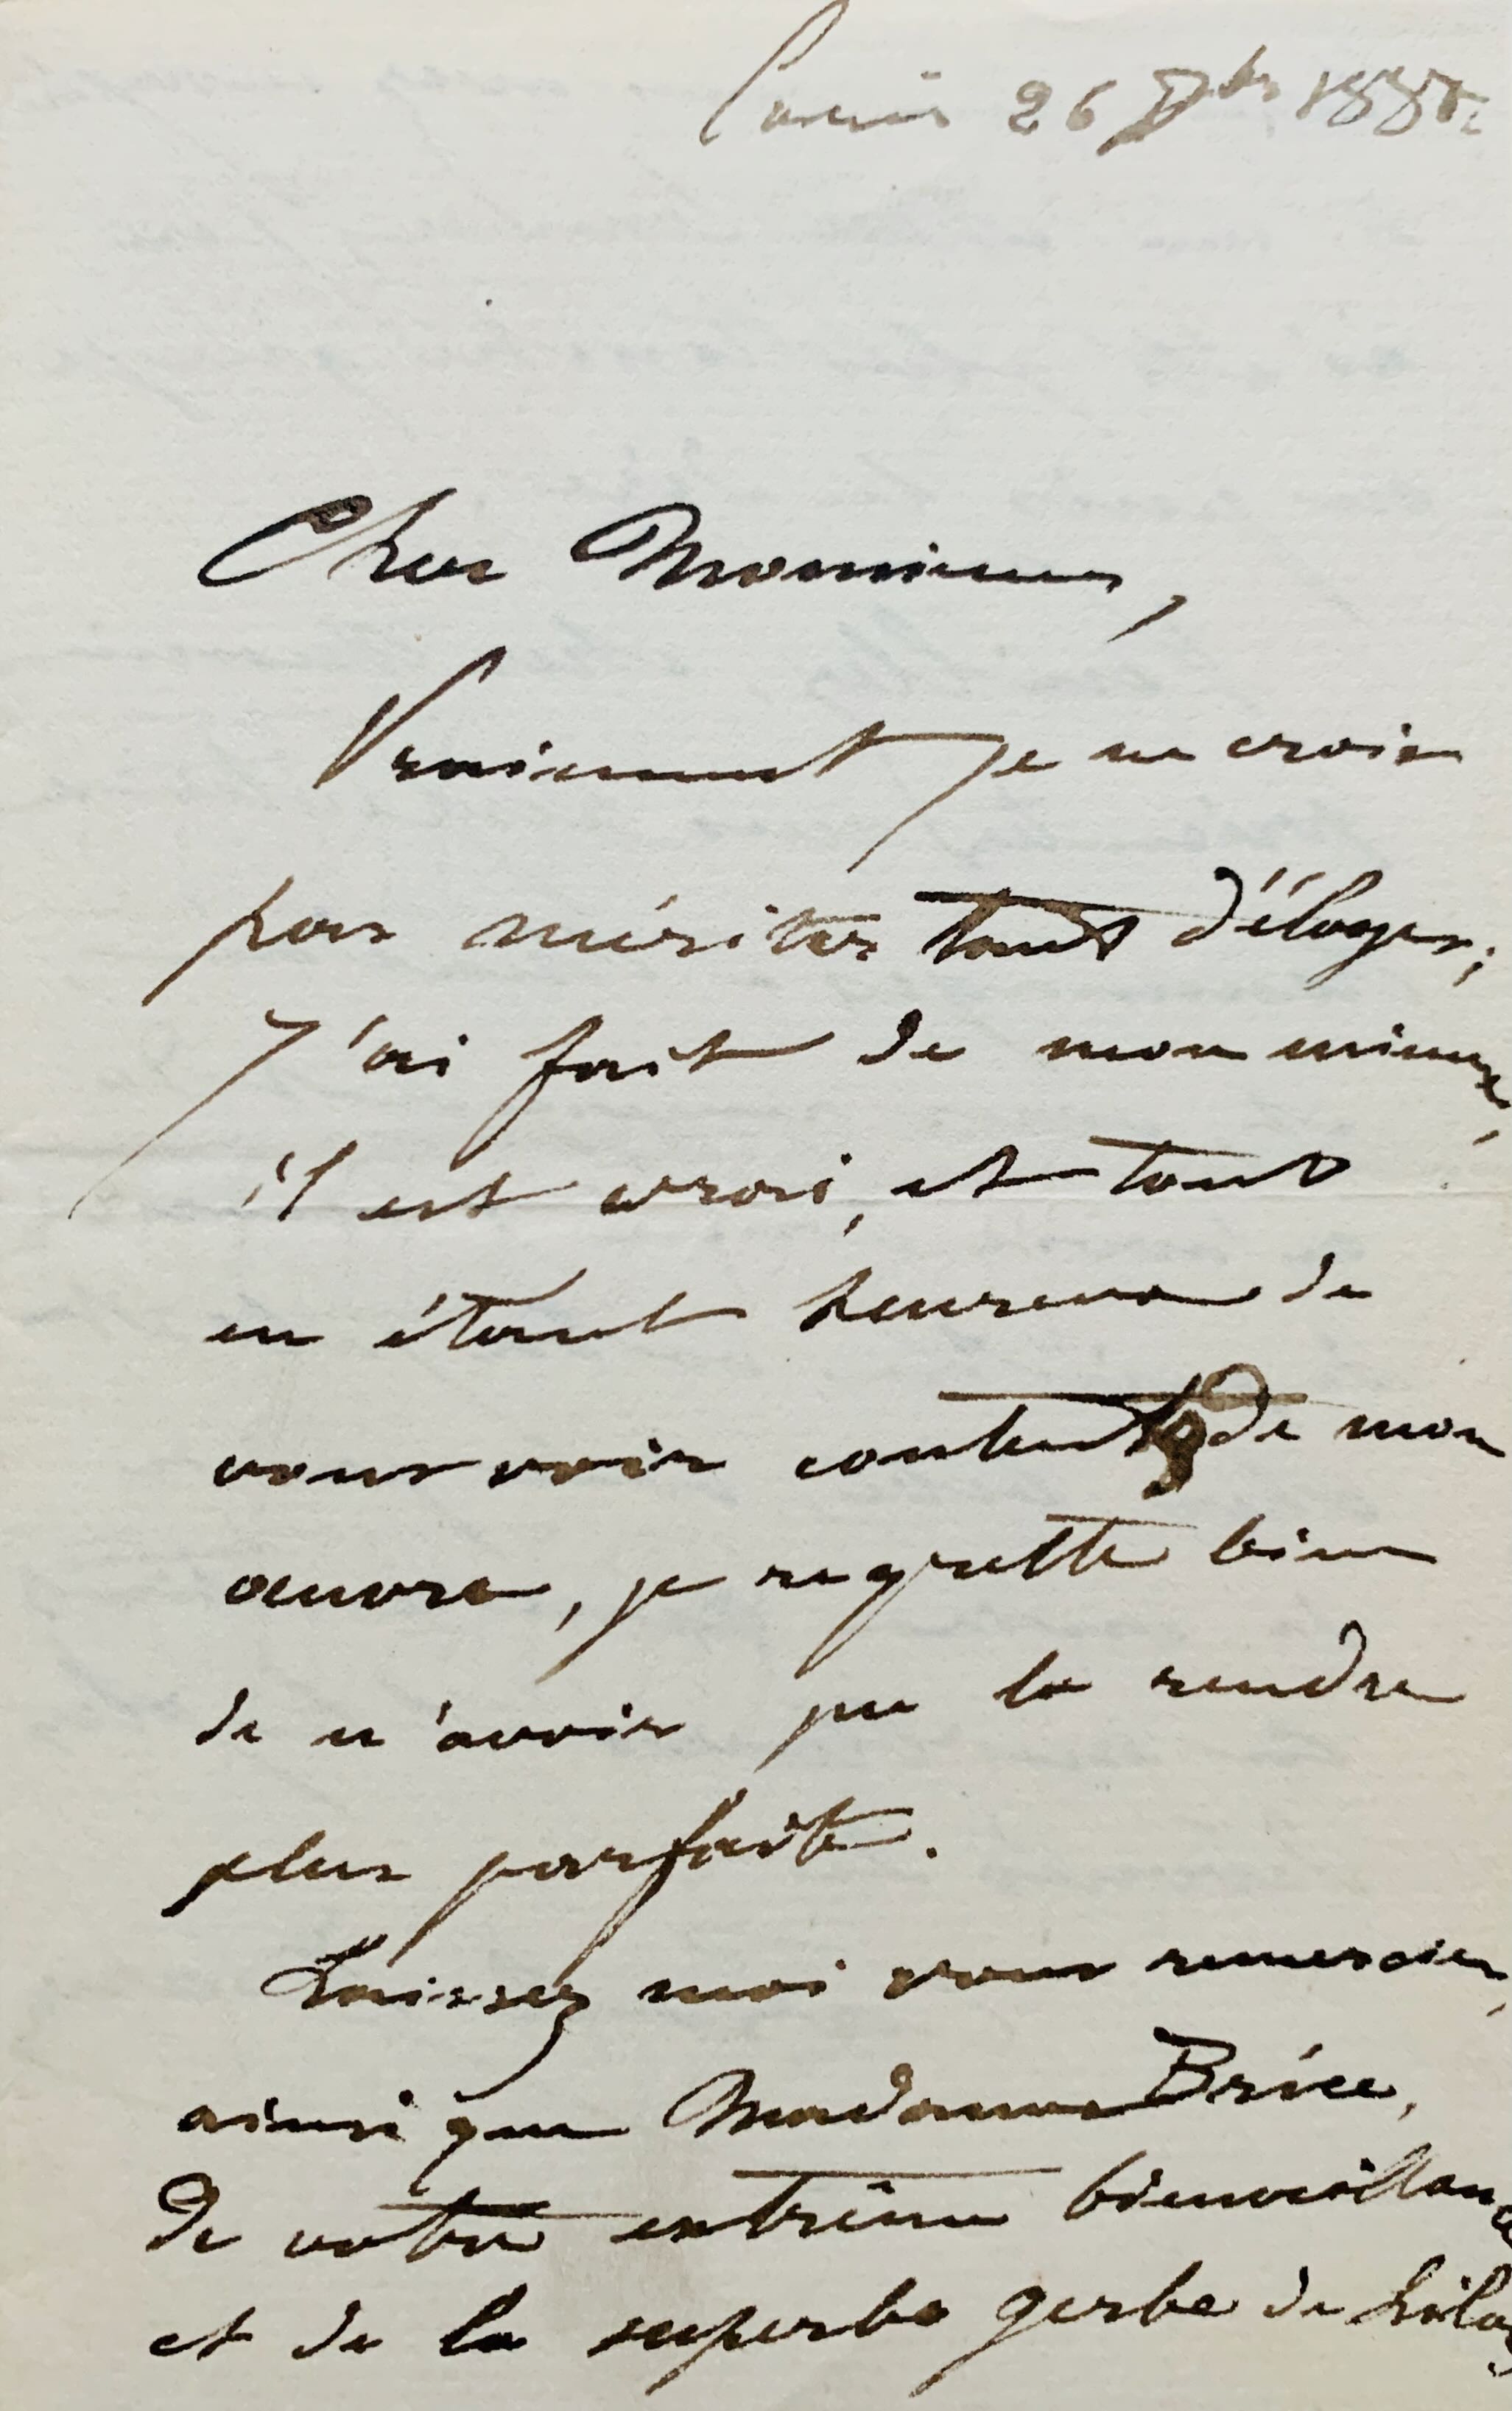 Paris 26 1885
Cher Monsieur,
Vraiment je ne crois
pas mériter tant d'éloges;
J'ai fait de mon mieux,
il est vrai, et tout
en étant heureux de
vous voir content de mon
œuvre, je regrette bien
de n'avoir pu la rendre
plus parfaite.
Laissez moi vous remercier,
ainsi que Madame Brice,
de votre extrême bienveillance
et de la superbe gerbe de Lilas